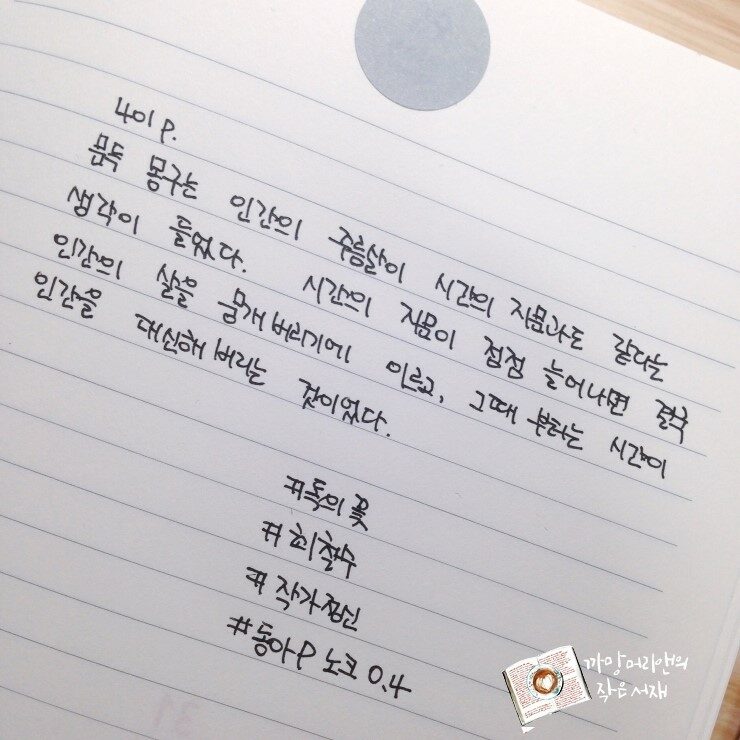 401 p.
문득 몽구는 인간의 주름살이 시간의 지문과도 같다는
생각이 들었다. 시간의 지문이 점점 늘어나면 결국
인간의 살을 뭉개버리기에 이르고, 그때부터는 시간이
인간을 대신해버리는 것이었다.
#독의 꽃
#최철수
#작가정신
#동아P 노크 0.4
까망머리앤의
작은서재